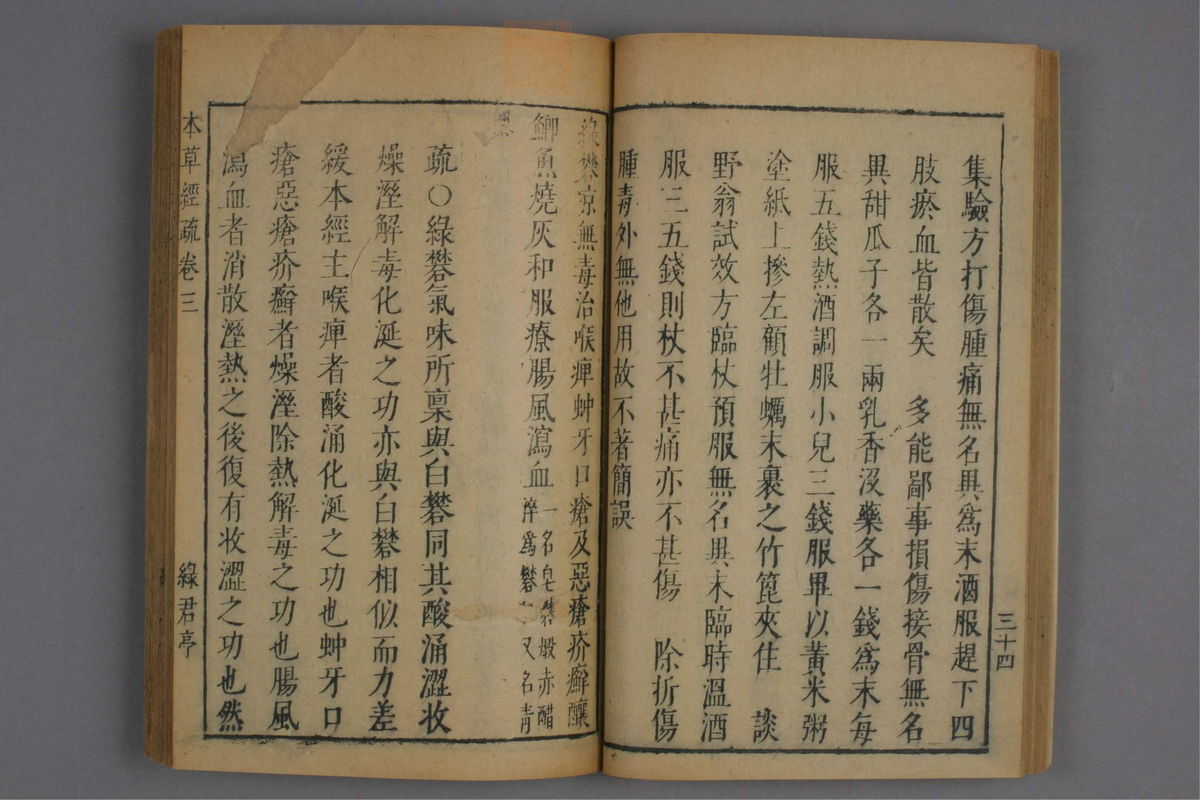 集驗方打傷腫痛無名異爲末酒服趕下四
肢瘀血皆散矣　多能鄙事損傷接骨無名
異甜瓜子各一兩乳香沒藥各一錢爲末每
服五錢熱酒調服小兒三錢服畢以黃米粥
塗紙上摻左顧牡蠣末裹之竹篦夾住　談
野翁試效方臨杖預服無名異末臨時溫酒
服三五錢則杖不甚痛亦不甚傷　除折傷
腫毒外無他用故不著簡誤
三十四
綠礬涼無毒治喉痺蚛牙口瘡及惡瘡疥癬釀
鯽魚燒灰和服療腸風瀉血一名皂礬煅赤醋
淬爲礬又名青
礬
疏○綠礬氣味所稟與白礬同其酸涌澀收
燥溼解毒化涎之功亦與白礬相似而力差
緩本經主喉痺者酸涌化涎之功也蚛牙口
瘡惡瘡疥癬者燥溼除熱解毒之功也腸風
瀉血者消散溼熱之後復有收澀之功也然
本草經疏卷三
綠君亭